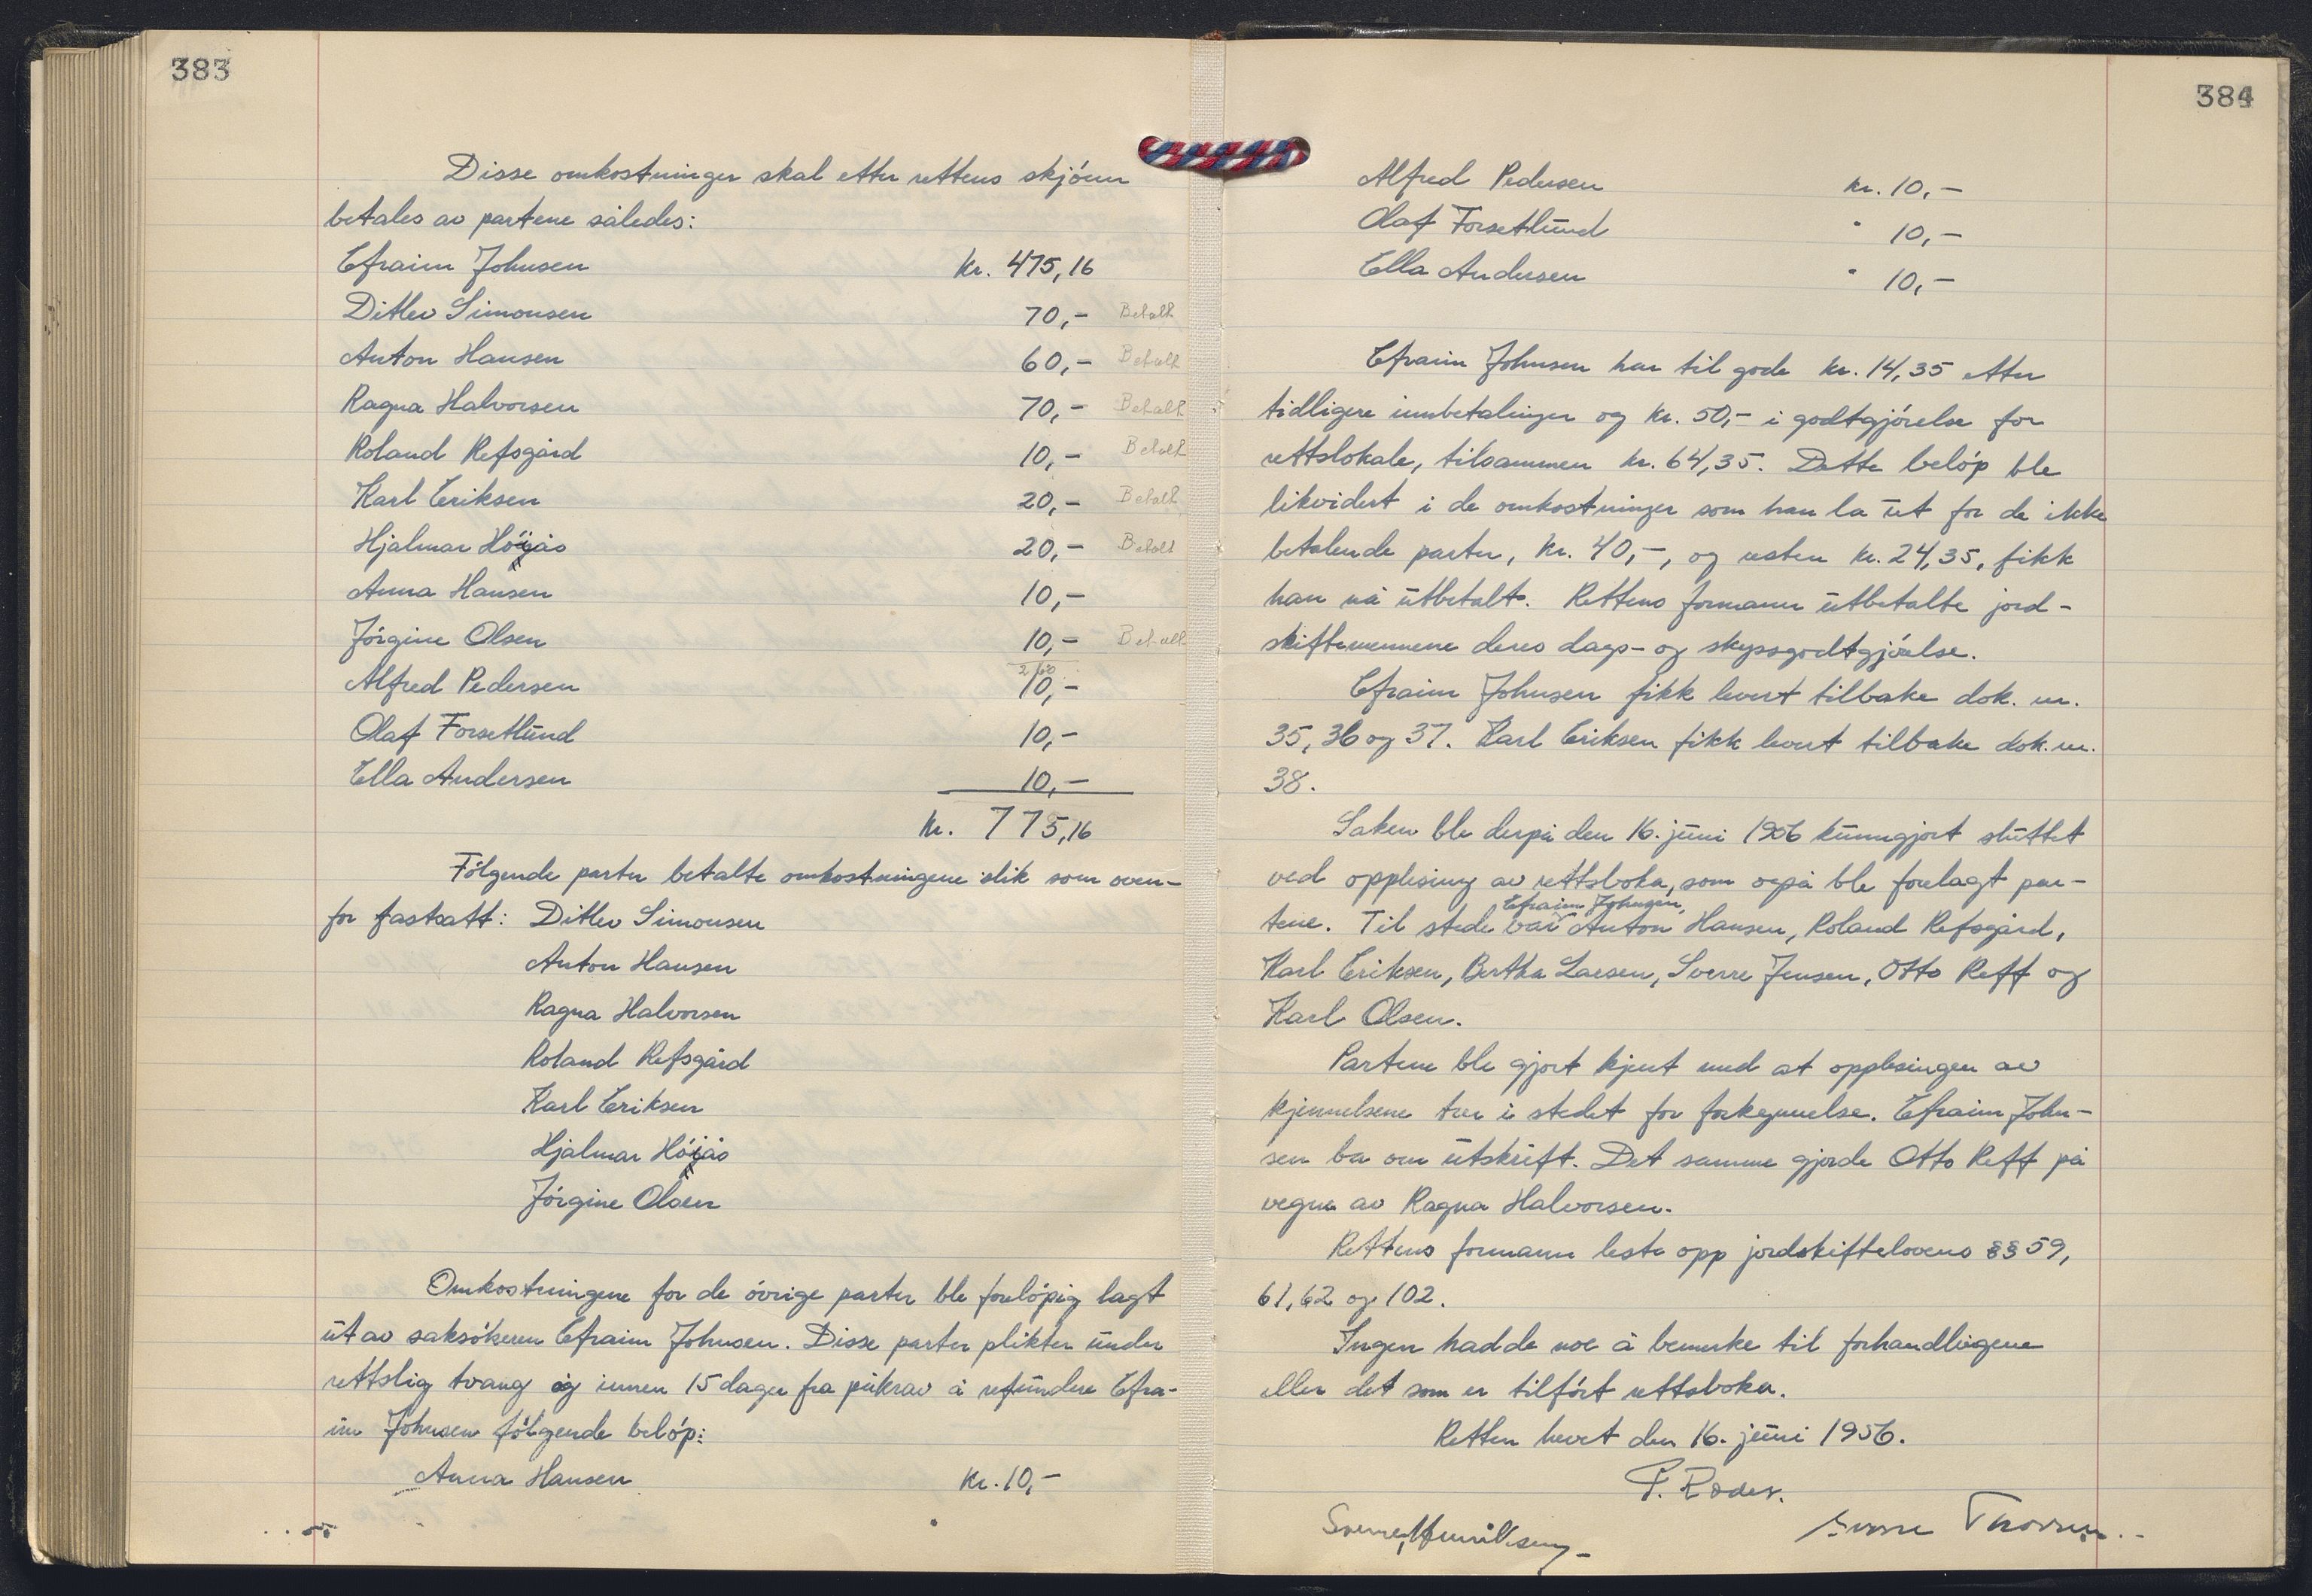 383
Disse omkostninger skal etter rettens skjönn
betales av partene således:
Efraim Johnsen kr. 475,16
Ditlev Simonsen 70,- Betalt
Anton Hansen 60,- Betalt
Ragna Halvorsen 70,- Betalt
Roland Refsgård 10,- Betalt
Karl Eriksen 20,- Betalt
Hjalmar Höyås 20,- Betalt
Anna Hansen 10,-
Jörgine Olsen 10,- Betalt
Alfred Pedersen 10,-
Olaf Forsetlund 10,-
Ella Andersen 10,-
kr. 775,16
Fölgende parter betalte omkostningene slik som oven-
for fastsatt: Ditlev Simonsen
Anton Hansen
Ragna Halvorsen
Roland Refsgård
Karl Eriksen
Hjalmar Höyås
Jörgine Olsen
Omkostningene for de övrige parter ble forelöpig lagt
ut av saksökeren Efraim Johnsen. Disse parter plikter under
rettslig tvang og innen 15 dager fra påkrav å refundere Efra-
im Johnsen fölgende belöp:
Anna Hansen kr. 10,-
384
Alfred Pedersen kr. 10,-
Olaf Forsetlund " 10,-
Ella Andersen " 10,-
Efraim Johnsen har til gode kr. 14,35 etter
tidligere innbetalinger og kr. 50,- i godtgjörelse for
rettslokale, tilsammen kr. 64,35. Dette belöp ble
likvidert i de omkostninger som han la ut for de ikke
betalende parter, kr. 40,-, og resten kr. 24,35, fikk
han nå utbetalt. Rettens formann utbetalte jord-
skiftemennene deres dags- og skyssgodtgjörelse.
Efraim Johnsen fikk levert tilbake dok. nr.
35, 36 og 37. Karl Eriksen fikk levert tilbake dok. nr.
38.
Saken ble derpå den 16. juni 1956 kunngjort sluttet
ved opplesing av rettsboka, som også ble forelagt par-
Efraim Johnsen,
tene. Til stede var Anton Hansen, Roland Refsgård,
Karl Eriksen, Bertha Larsen, Sverre Jensen, Otto Reff og
Karl Olsen.
Partene ble gjort kjent med at opplesingen av
kjennelsene trer i stedet for forkynnelse. Efraim John-
sen ba om utskrift. Det samme gjorde Otto Reff på
vegne av Ragna Halvorsen.
Rettens formann leste opp jordskiftelovens §§ 59,
61, 62 og 102.
Ingen hadde noe å bemerke til forhandlingene
eller det som er tilfört rettsboka.
Retten hevet den 16. juni 1956.
Sverre